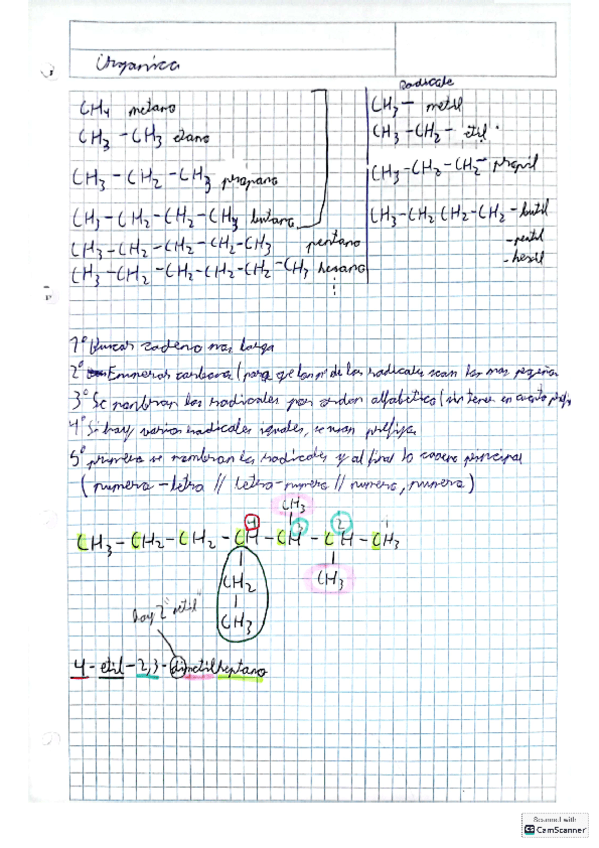 Organica
CH4 metano
CH3 - CH3 etano
CH3 - CH2 - CH3 propano
CH3 - CH2 - CH2 - CH3 butano
CH3 - CH2 - CH2 - CH2 - CH3 pentano
CH3 - CH2 - CH2 - CH2 - CH2 - CH3 hexano
Radicale
CH3 — metil
CH3 - CH2 - etil
CH3 - CH2 - CH2 - propil
CH3 - CH2 CH2 - CH2 - butil
- pentil
- hexil
1º Buscar cadena mas larga
2º Enumerar carbono (para que los nº de los radicales sean los mas pequeños
3º Se nombran los radicales por orden alfabetico (sin tener en cuenta prefijo
4º Si hay varios radicales iguales, se usan prefijos
5º primero se nombran los radicales y al final la cadena principal
(numero - letra // letra - numero // numero, numero)
CH3
4 3 2 1
CH3 - CH2 - CH2 - CH - CH - CH - CH3
CH2 CH3
CH3
hay 2 "metil"
4 - etil - 2,3 - dimetilheptano
Scanned with
CS CamScanner